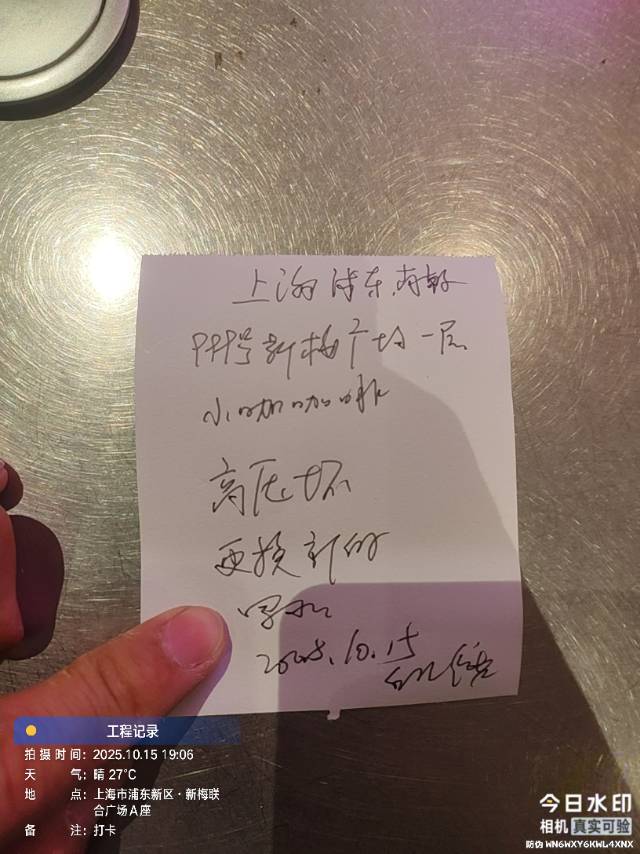 上海浦东
999号新梅广场一层
小咖咖啡
高压坏
更换新的
2025.10.15
工程记录
拍摄时间：2025.10.15 19:06
天气：晴 27°C
地点：上海市浦东新区·新梅联
合广场A座
备注：打卡
今日水印
相机 真实可验
防伪 WN6WXY6KWL4XNX